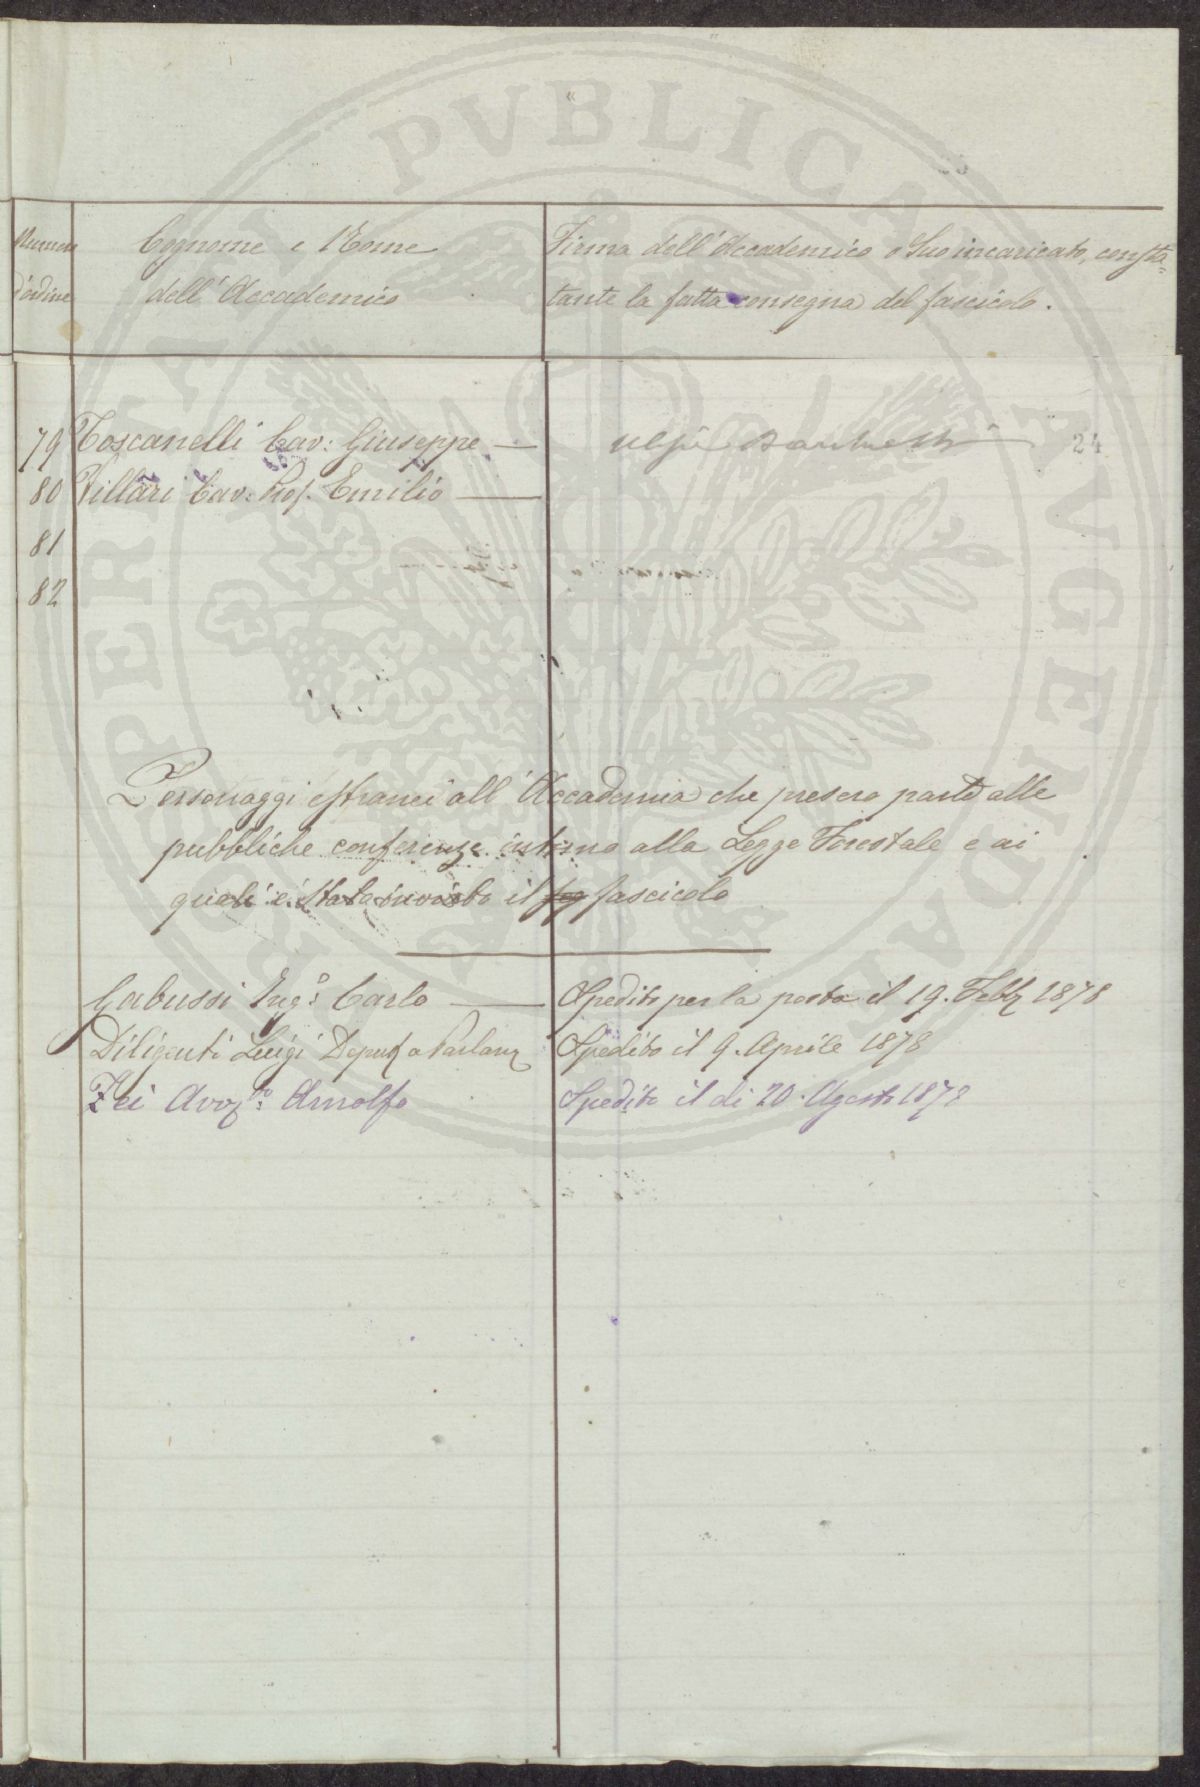 PVBLICA
Numero Cognome e Nome Firma dell'Accademico o Suo incaricato, consta-
d'ordine dell'Accademico tante la fatta consegna del fascicolo.
79 Toscanelli Cav: Giuseppe — 24
80 Villari Cav: Prof. Emilio —
81
82
Personaggi estranei all'Accademia che presero parte alle
pubbliche conferenze intorno alla Legge Forestale e ai
quali è stato inviato il fascicolo
Gabussi Ing.e Carlo — Spedito per la posta il 19. Febb. 1878
Diligenti Luigi Deput. a Parlam. Spedito il 9. Aprile 1878
Zei Avv.to Arnolfo Spedito il di 20. Agosto 1878